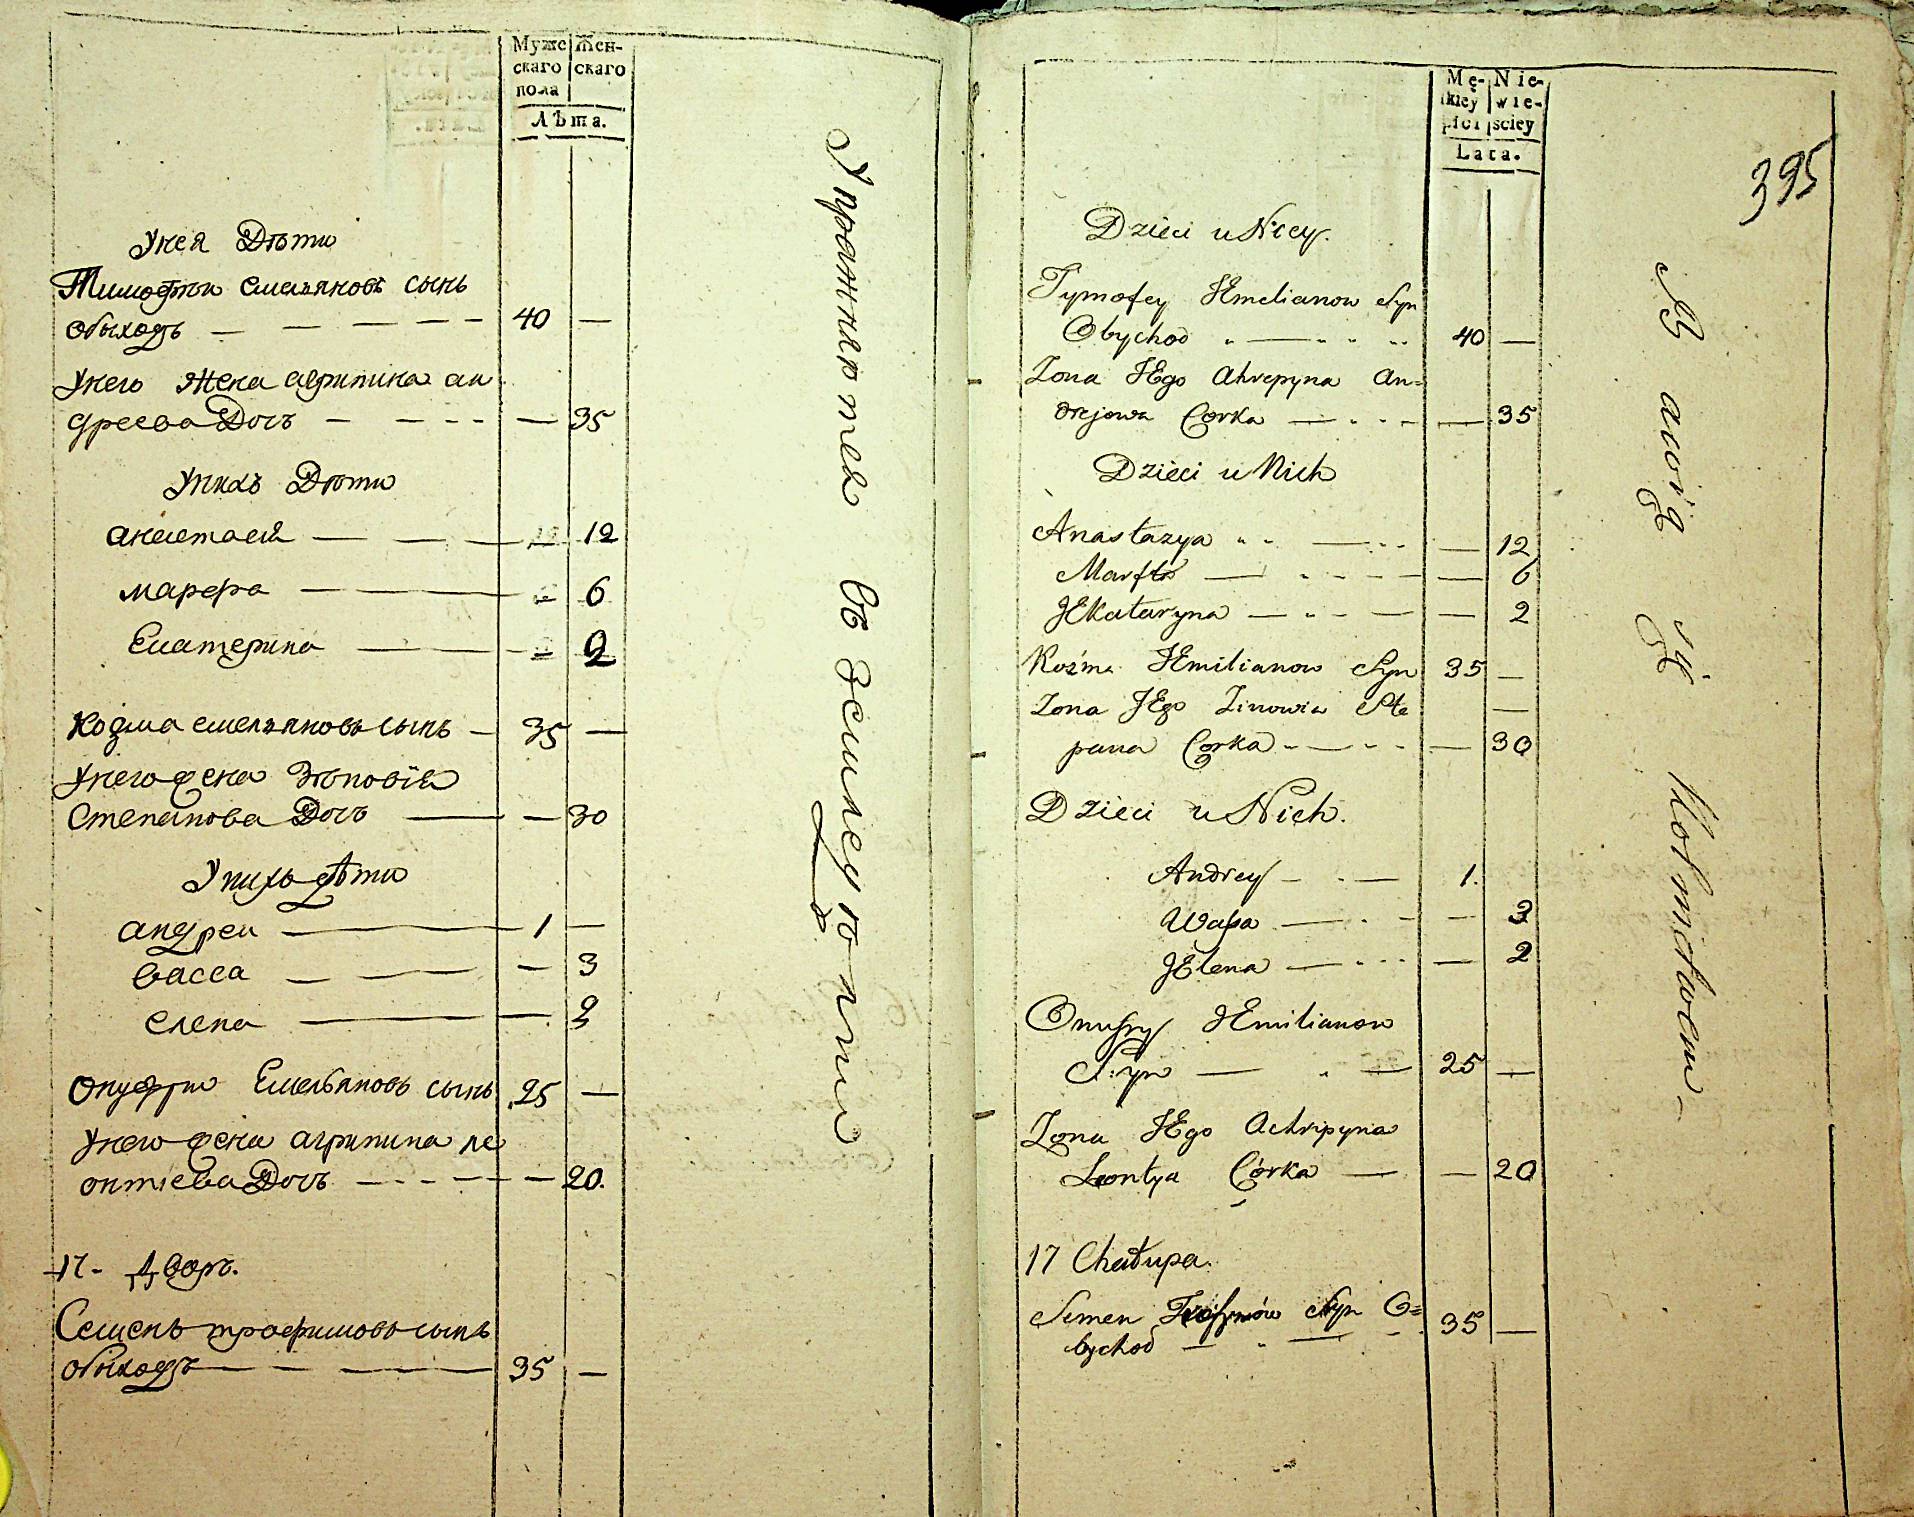 Муже Жен-
скаго скаго
пола
Лѣта.
Унея Дѣти
Тимофѣи емельяновъ сынъ
обыходъ — — — — — 40 —
Унего жена агрипина ан
дреева Дочь — — — — 35
Унихъ Дѣти
анастасия — — — 12
марфа — — 6
Екатерина — — 2
Козма емельяновъ сынъ — 35 —
Унего жена Зѣновія
Степанова Дочь — — 30
Унихъ дѣти
андреи — 1 —
васса — — — — 3
елена — — 2
Онуфрии Емельяновъ сынъ 25 —
Унего жена агрипина ле
онтиева Дочь — — — — 20.
17 - Дворъ.
Семенъ трофимовъ сынъ
обыходъ — — — — 35 —
Упражняются въ
земледѣлии
Mę- Nie-
skiey wie-
płci sciey
Lata.
395
Dzieci u Niey.
Tymofey JEmelianow Syn
Obychod — 40 —
Zona JEgo Ahrepyna An=
drejowa Corka — — 35
Dzieci u Nich
Anastazya — — 12
Marfa — — 6
JEkataryna — — 2
Kozma JEmilianow Syn 35 —
Zona JEgo Zinowia Ste —
pana Corka — — 30
Dzieci u Nich.
Andrey — — 1.
Wassa — — 3
JElena — — 2
Onufry JEmilianow
Syn — — 25 —
Zona JEgo Achripyna
Leontya Córka — — 20
17 Chałupa.
Semen Trofymów Syn O=
bychod — — 35 —
Bawią się Rolnictwem —